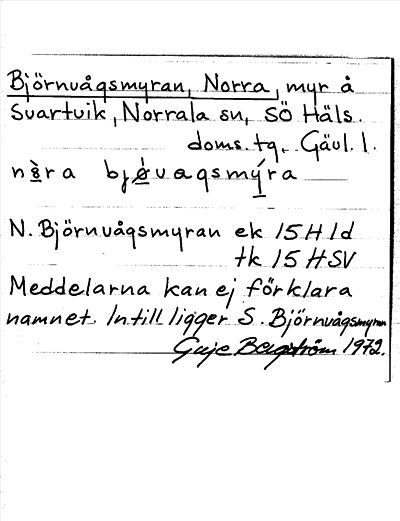 Björnvågsmyran, Norra, myr å
Svartvik, Norrala sn, SÖ Häls.
doms. tg. Gävl. l.
nè̱ra bjǿ̱vagsmý̱ra
N. Björnvågsmyran ek 15H1d
tk 15HSV
Meddelarna kan ej förklara
namnet. Intill ligger S. Björnvågsmyran
Guje Bergström 1972.